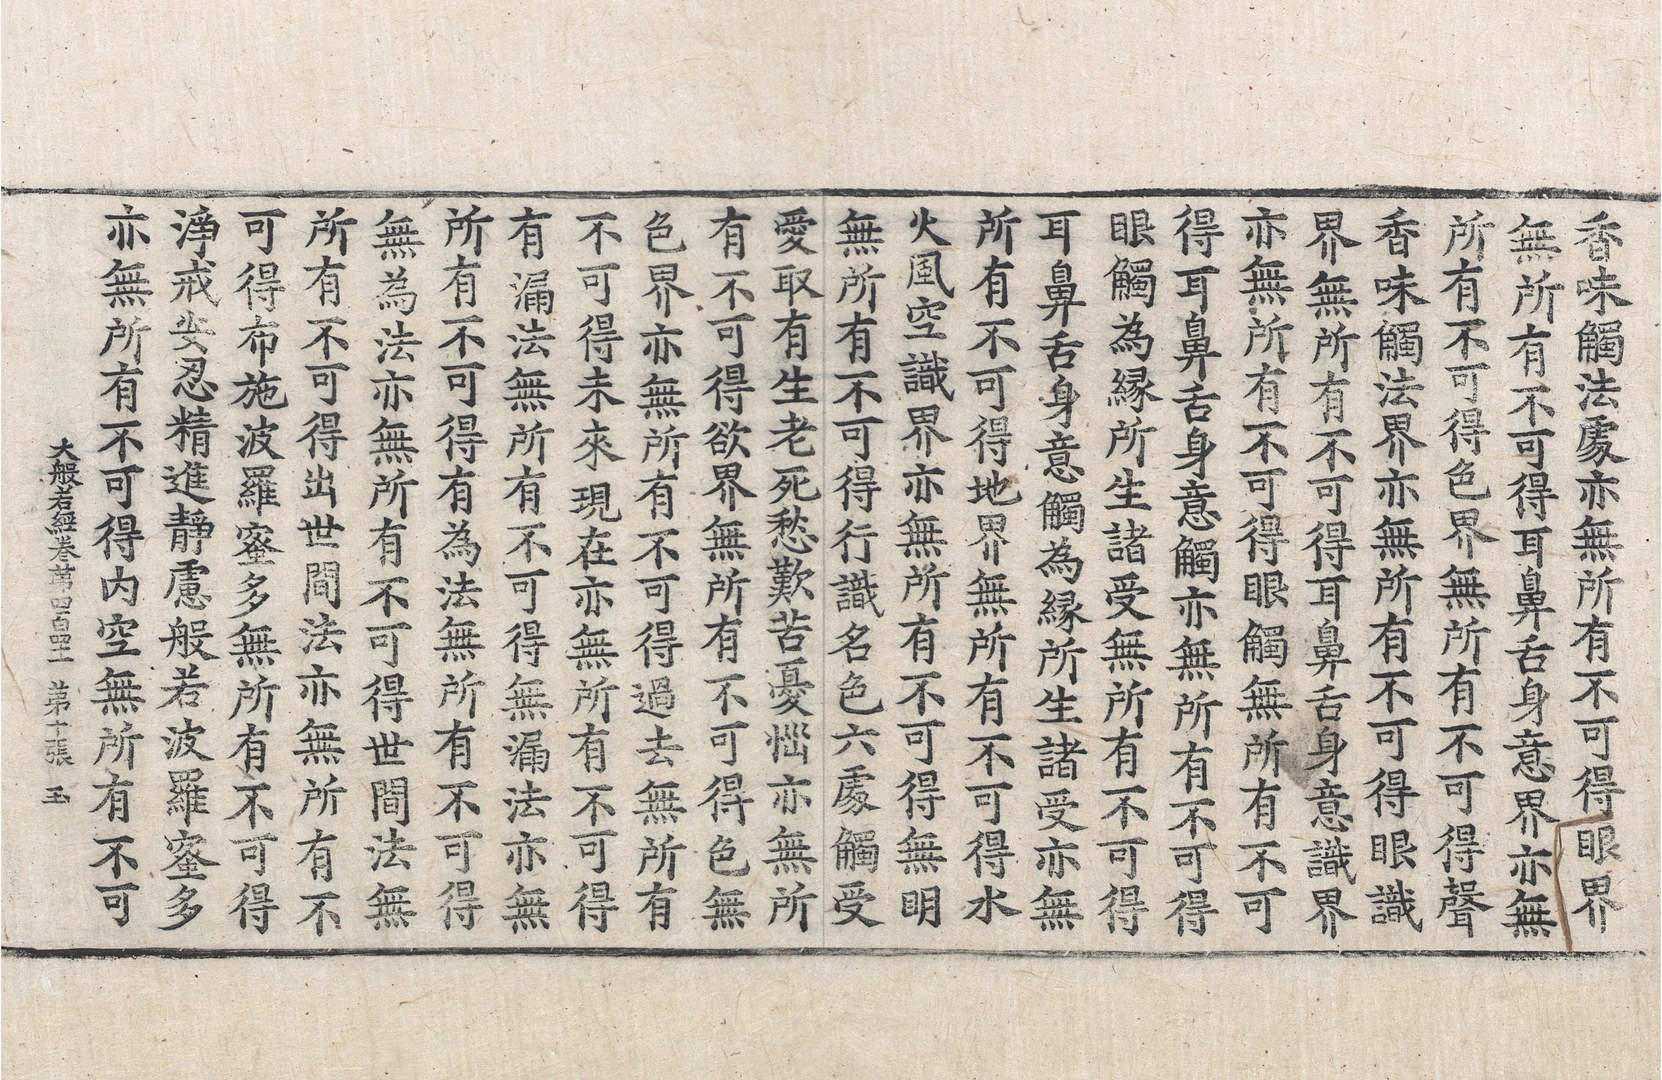 香味觸法處亦無所有不可得眼界
無所有不可得耳鼻舌身意界亦無
所有不可得色界無所有不可得聲
香味觸法界亦無所有不可得眼識
界無所有不可得耳鼻舌身意識界
亦無所有不可得眼觸無所有不可
得耳鼻舌身意觸亦無所有不可得
眼觸為縁所生諸受無所有不可得
耳鼻舌身意觸為縁所生諸受亦無
所有不可得地界無所有不可得水
火風空識界亦無所有不可得無明
無所有不可得行識名色六處觸受
愛取有生老死愁歎苦憂惱亦無所
有不可得欲界無所有不可得色無
色界亦無所有不可得過去無所有
不可得未來現在亦無所有不可得
有漏法無所有不可得無漏法亦無
所有不可得有為法無所有不可得
無為法亦無所有不可得世間法無
所有不可得出世間法亦無所有不
可得布施波羅蜜多無所有不可得
淨戒安忍精進靜慮般若波羅蜜多
亦無所有不可得内空無所有不可
大般若經卷第四百二十一 第十張 玉